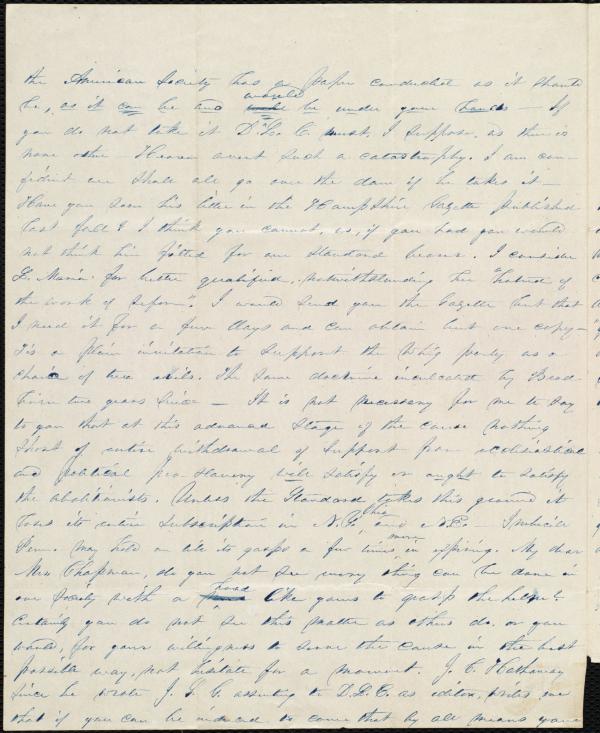 the American Society has a paper conducted as it should
be, as it can be and would be under your hands — If
you do not take it D. L. C. must, I suppose, as there is
none other — Heaven avert such a catastrophy. I am con-
fident we shall all go over the dam if he takes it —
Have you seen his letter in the Hampshire Gazette published
last fall? I think you cannot, as, if you had you would
not think him fitted for our standard bearer. I consider
L. Maria far better qualified, notwithstanding her "hatred of
the work of reform". I would send you the Gazette but that
I need it for a few days and can obtain but one copy —
Tis a plain invitation to support the Whig party as a
choice of two evils. The same doctrine inculcated by Brad-
burn two years since — It is not necessary for me to say
to you that at this advanced stage of the cause nothing
short of entire withdrawal of support from ecclesiastical
and political pro slavery will satisfy or ought to satisfy
the abolitionists. Unless the Standard takes this ground it
loses its entire subscription in N.Y. and N.E. — Imbecile
Penn. may hold on till it gasps a few times more in expiring. My dear
Mrs. Chapman, do you not see every thing can be done in
our Society with a head like yours to grasp the helm?
Certainly you do not see this matter as others do, or you
would, for your willingness to serve the cause in the best
possible way, not hesitate for a moment. J. C. Hathaway
since he wrote J. S. G. assenting to D. L. C. as editor, writes me
that if you can be induced to come that by all means you